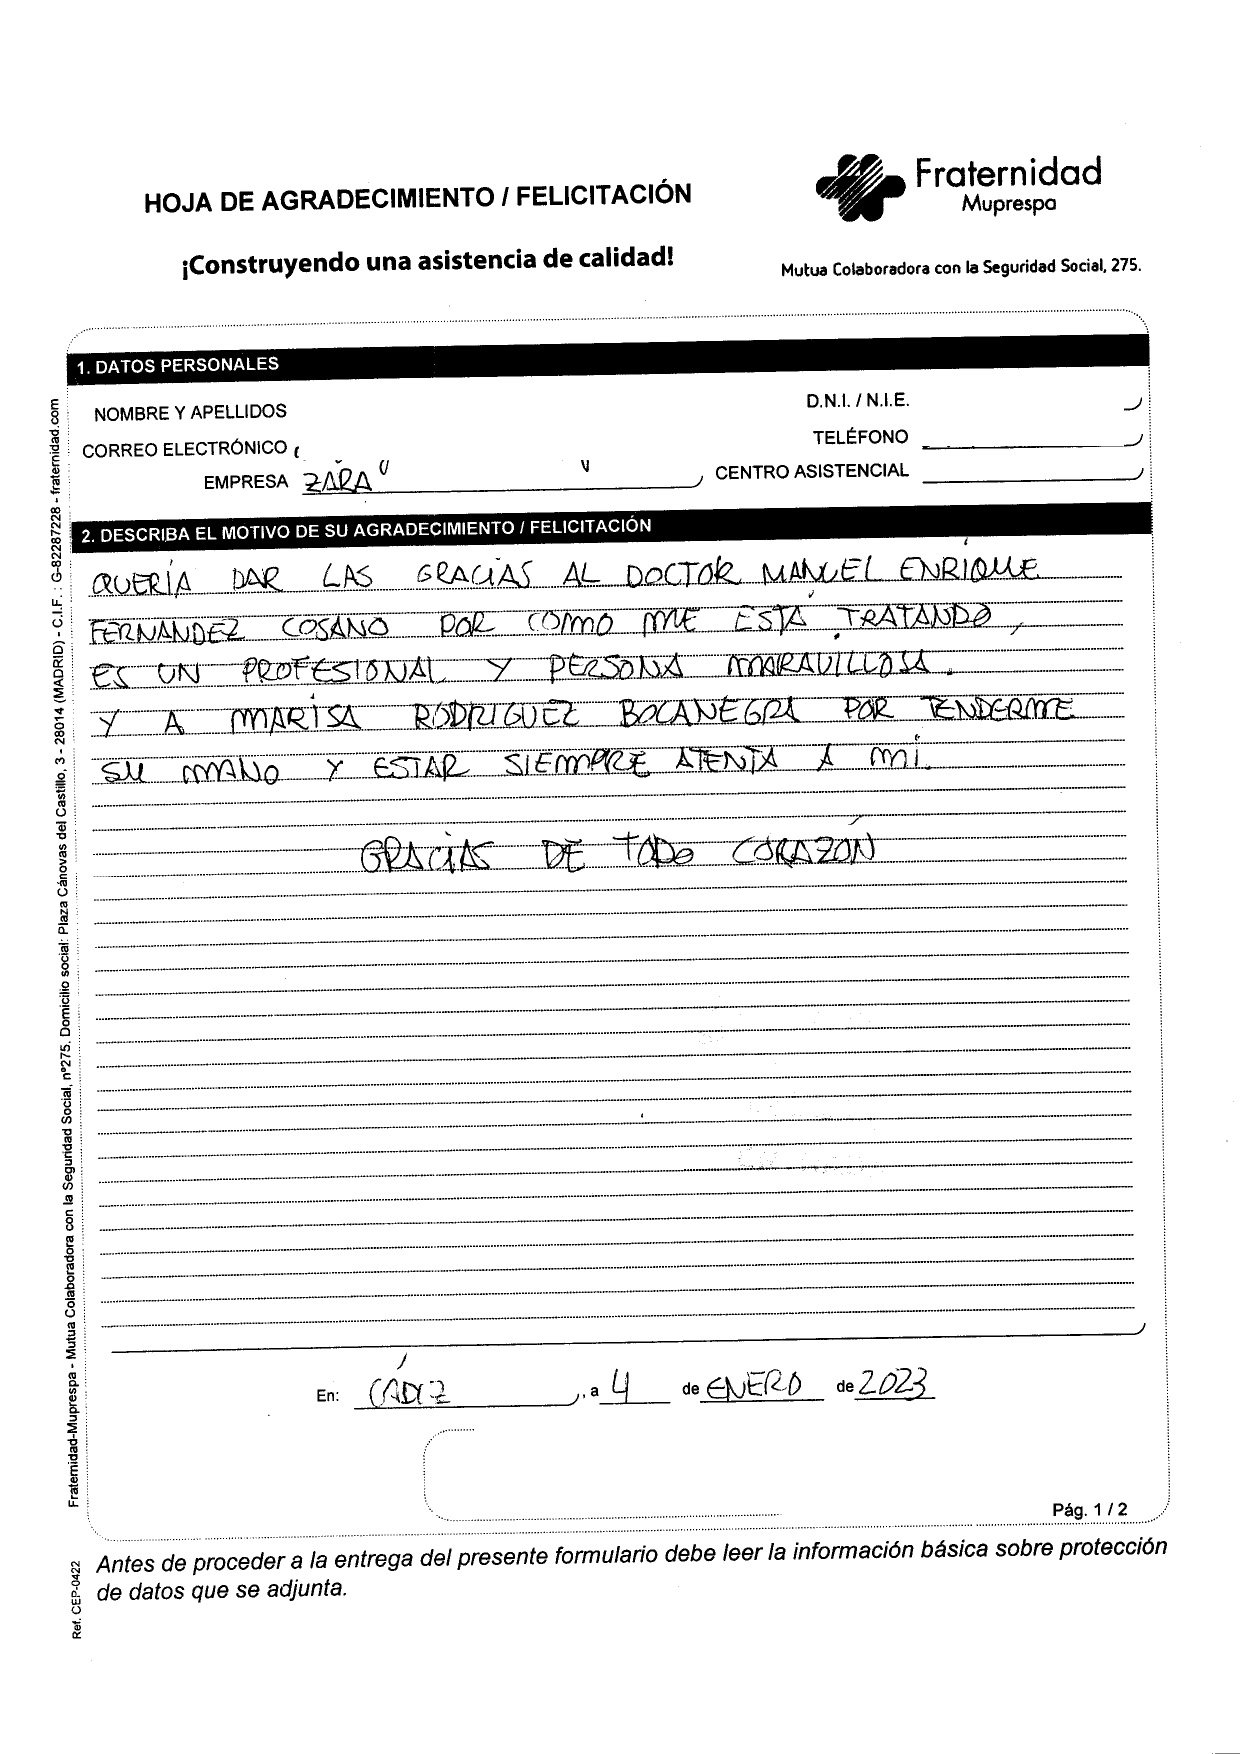 HOJA DE AGRADECIMIENTO / FELICITACIÓN
¡Construyendo una asistencia de calidad!
Fraternidad
Muprespa
Mutua Colaboradora con la Seguridad Social, 275.
1. DATOS PERSONALES
NOMBRE Y APELLIDOS
D.N.I. / N.I.E.
CORREO ELECTRÓNICO
TELÉFONO
EMPRESA ZARA
CENTRO ASISTENCIAL
2. DESCRIBA EL MOTIVO DE SU AGRADECIMIENTO / FELICITACIÓN
QUERÍA DAR LAS GRACIAS AL DOCTOR MANUEL ENRIQUE
FERNANDEZ COSANO POR COMO ME ESTÁ TRATANDO,
ES UN PROFESIONAL Y PERSONA MARAVILLOSA.
Y A MARISA RODRIGUEZ BOCANEGRA POR TENDERME
SU MANO Y ESTAR SIEMPRE ATENTA A MÍ.
GRACIAS DE TODO CORAZÓN
En: CÁDIZ , a 4 de ENERO de 2023
Pág. 1 / 2
Antes de proceder a la entrega del presente formulario debe leer la información básica sobre protección
de datos que se adjunta.
Fraternidad-Muprespa - Mutua Colaboradora con la Seguridad Social, nº275. Domicilio social: Plaza Cánovas del Castillo, 3 - 28014 (MADRID) - C.I.F. : G-82287228 - fraternidad.com
Ref. CEP-0422